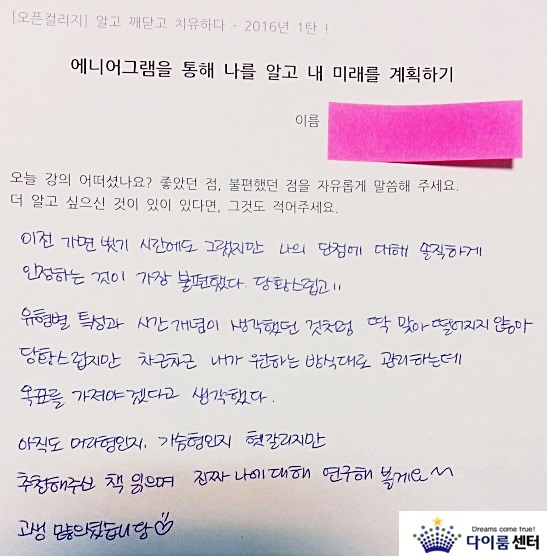 [오픈컬리지] 알고 깨닫고 치유하다 - 2016년 1탄 !
에니어그램을 통해 나를 알고 내 미래를 계획하기
이름
오늘 강의 어떠셨나요? 좋았던 점, 불편했던 점을 자유롭게 말씀해 주세요.
더 알고 싶으신 것이 있이 있다면, 그것도 적어주세요.
이전 가면 벗기 시간에도 그랬지만 나의 단점에 대해 솔직하게
인정하는 것이 가장 불편했다. 당황스럽고!!
유형별 특성과 시간개념이 생각했던 것처럼 딱 맞아 떨어지지 않아
당황스럽지만 차근차근 내가 원하는 방식대로 관리하는데
목표를 가져야겠다고 생각했다.
아직도 머리형인지, 가슴형인지 헷갈리지만
추천해주신 책 읽으며 진짜 나에대해 연구해 볼게요~
고생 많으셨습니당♡
Dreams come true!
다이룸센터